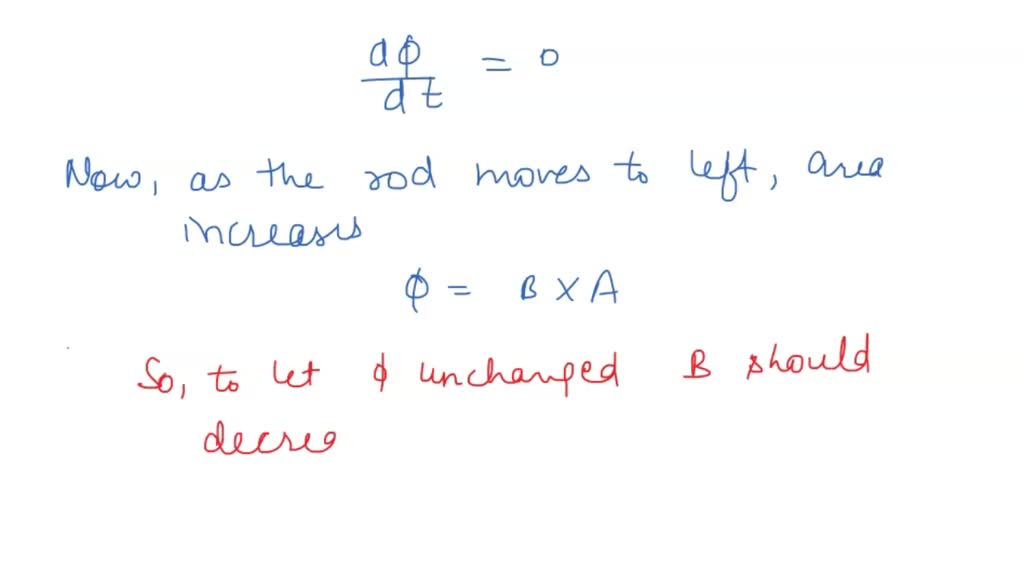 dϕ/dt = 0
Now, as the rod moves to left, area
increases
ϕ = B X A
So, to let ϕ unchanged B should
decrea